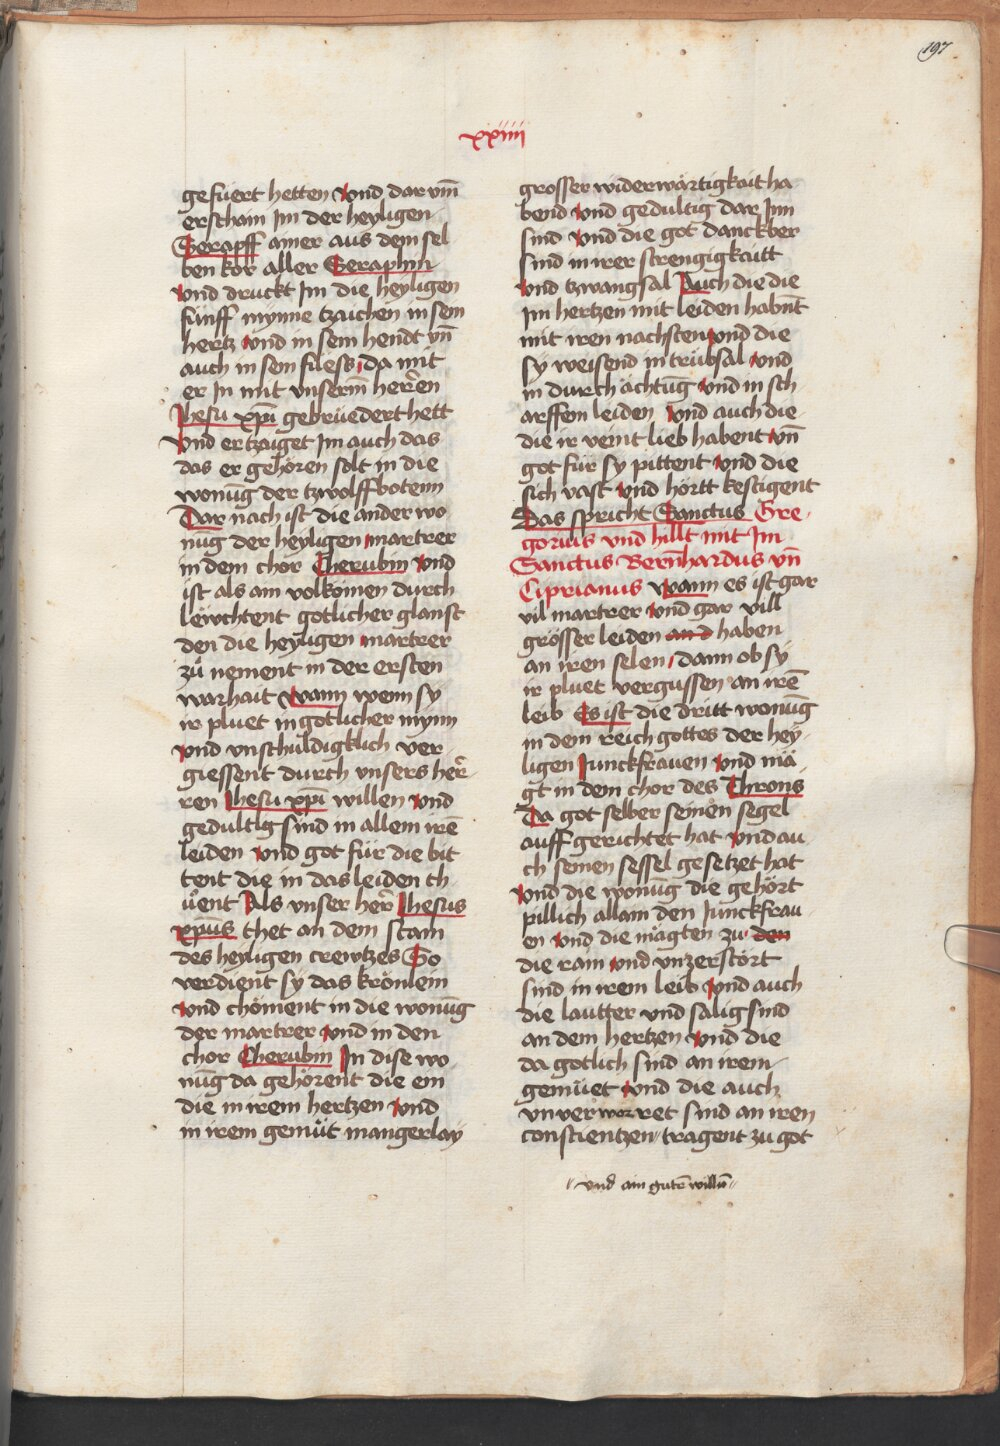 197
xxiiii
gefüert hetten vnd dar vm̄
erschain Im der heyligen
Serapff ainer aus dem sel
ben kor aller Seraphin
vnd druckt Im die heyligen
fünff mynne tzaichen in sein
hertz vnd in sein hendt vn̄
auch in sein fuess da mit
er In mit vnserm̄ herren
Jhesu xp̄i gebrüedert hett
Vnd ertzaiget Im auch das
das er gehören solt in die
wonūg der tzwolffbotenn
Dar nach ist die ander wo
nūg der heyligen martrer
in dem chor Cherubin vnd
ist als ain volkōmen durch
lewchtent gotlicher glanst
den die heyligen martrer
zů nement in der ersten
warhait wann wenn sy
ir pluet in gotlicher mynn
vnd vnschuldigklich ver
giessent durch vnsers her̄
ren Jhesu xp̄i willen vnd
gedultig sind in allem irē
leiden vnd got für die bit
tent die in das leiden th
üent Als vnser her̄ Jhesus
xp̄us thet an dem stam
des heyligen crewtzes So
verdient sy das krönlein
vnd chöment in die wonūg
der martrer vnd in den
chor Cherubin In dise wo
nūg da gehörent die ein
die in irem hertzen vnd
in irem gemüt mangerlay
grosser widerwärtigkait ha
bend vnd gedultig dar Inn
sind vnd die got danckber
sind in irer strengigkaitt
vnd tzwangsal Auch die die
Im hertzen mit leiden habn̄t
mit iren nachsten vnd die
sy weisend in trübsal vnd
in durch ächtūg vnd in sch
arffem leiden Vnd auch die
die ir veint lieb habent vn̄
got für sy pittent vnd die
sich vast vnd hörtt kestigent
Das spricht Sanctus Gre
gorius vnd hillt mit Im
Sanctus Bern̄hardus vn̄
Ciprianus wann es ist gar
vil martrer vnd gar vill
grösser leiden and haben
an iren selen dann ob sy
ir pluet vergussen an irē
leib Es ist die dritt wonūg
in dem reich gottes der hey
ligen Junckfrauen vnd mä
gt in dem chor des Throns
Da got selber seinen segel
auff gerichtet hat vnd au
ch seinen sessel gesetzet hat
vnd die wonūg die gehört
pillich allain den Junckfrau
en vnd die mägten zu den
die rain vnd vnzerstört
sind in irem leib vnd auch
die lautter vnd salig sind
an dem hertzen vnd die
da gotlich sind an irem
gemüet vnd die auch
vnverworret sind an iren
conscientzen tragent zu got
vnd ain gutē willn̄